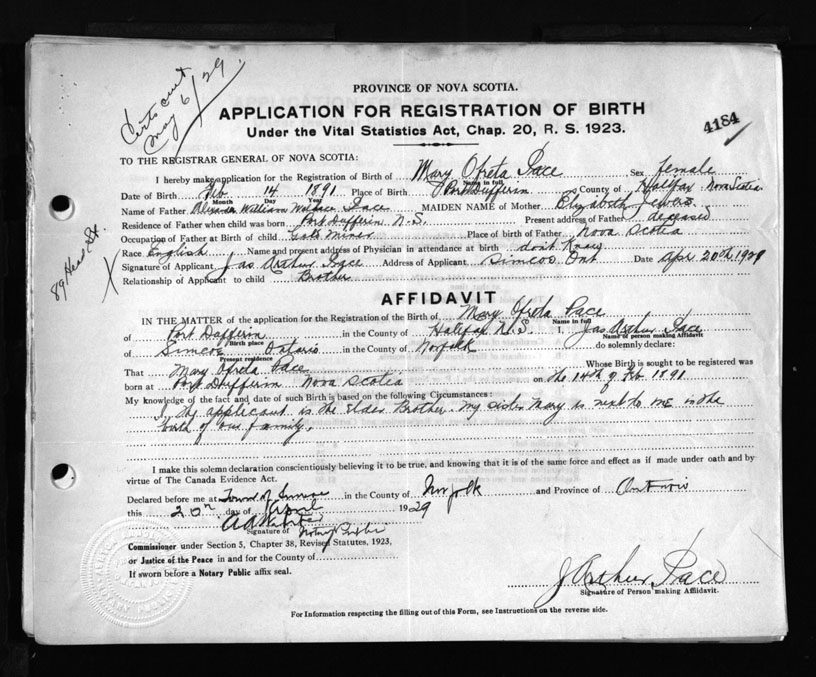 Certs cut
May 6/29.
PROVINCE OF NOVA SCOTIA.
APPLICATION FOR REGISTRATION OF BIRTH
Under the Vital Statistics Act, Chap. 20, R. S. 1923.
4184
TO THE REGISTRAR GENERAL OF NOVA SCOTIA:
I hereby make application for the Registration of Birth of Mary Ofreta Pace Sex female
Name in full
Date of Birth Feb. 14 1891 Place of Birth Port Dufferin County of Halifax Nova Scotia
Month Day Year
Name of Father William Wallace Pace MAIDEN NAME of Mother Elizabeth Jewers
Residence of Father when child was born Port Dufferin N.S. Present address of Father deceased
Occupation of Father at Birth of child Gold Miner Place of birth of Father Nova Scotia
Race English Name and present address of Physician in attendance at birth dont Know
Signature of Applicant Jas Arthur Pace Address of Applicant Simcoe Ont Date Apr 20th 1929
Relationship of Applicant to child Brother
89 Head St.
AFFIDAVIT
IN THE MATTER of the application for the Registration of the Birth of Mary Ofreta Pace
Name in full
of Port Dufferin in the County of Halifax N.S. I, Jas Arthur Pace
Birth place Name of person making Affidavit
of Simcoe Ontario in the County of Norfolk do solemnly declare:
Present residence
That Mary Ofreta Pace Whose Birth is sought to be registered was
born at Port Dufferin Nova Scotia on the 14th of Feb. 1891
My knowledge of the fact and date of such Birth is based on the following Circumstances:
I, the applicant is the Elder Brother. My sister Mary is next to me in the
birth of our family.
I make this solemn declaration conscientiously believing it to be true, and knowing that it is of the same force and effect as if made under oath and by
virtue of The Canada Evidence Act.
Declared before me at Town of Simcoe in the County of Norfolk and Province of Ontario
this 20th day of April 1929
Signature of Notary Public
Commissioner under Section 5, Chapter 38, Revised Statutes, 1923,
or Justice of the Peace in and for the County of
If sworn before a Notary Public affix seal.
J Arthur Pace
Signature of Person making Affidavit.
For Information respecting the filling out of this Form, see Instructions on the reverse side.